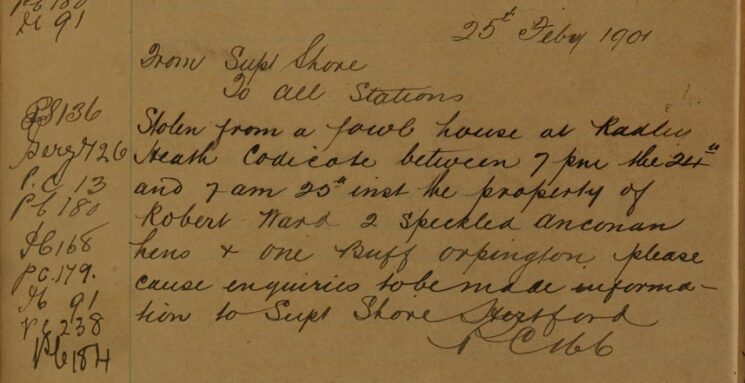 Pc 180
Pc 91
25th Feby 1901
From Supt Shore
To All Stations
PS 136
Sergt 26
P.C. 13
Pc 180
Pc 168
PC.179.
Pc 91
Pc 238
Pc 184
Stolen from a fowl house at Radley
Heath Codicote between 7 pm the 24th
and 7 am 25th inst the property of
Robert Ward 2 speckled anconan
hens & one Buff orpington please
cause enquiries to be made informa-
tion to Supt Shore Hertford